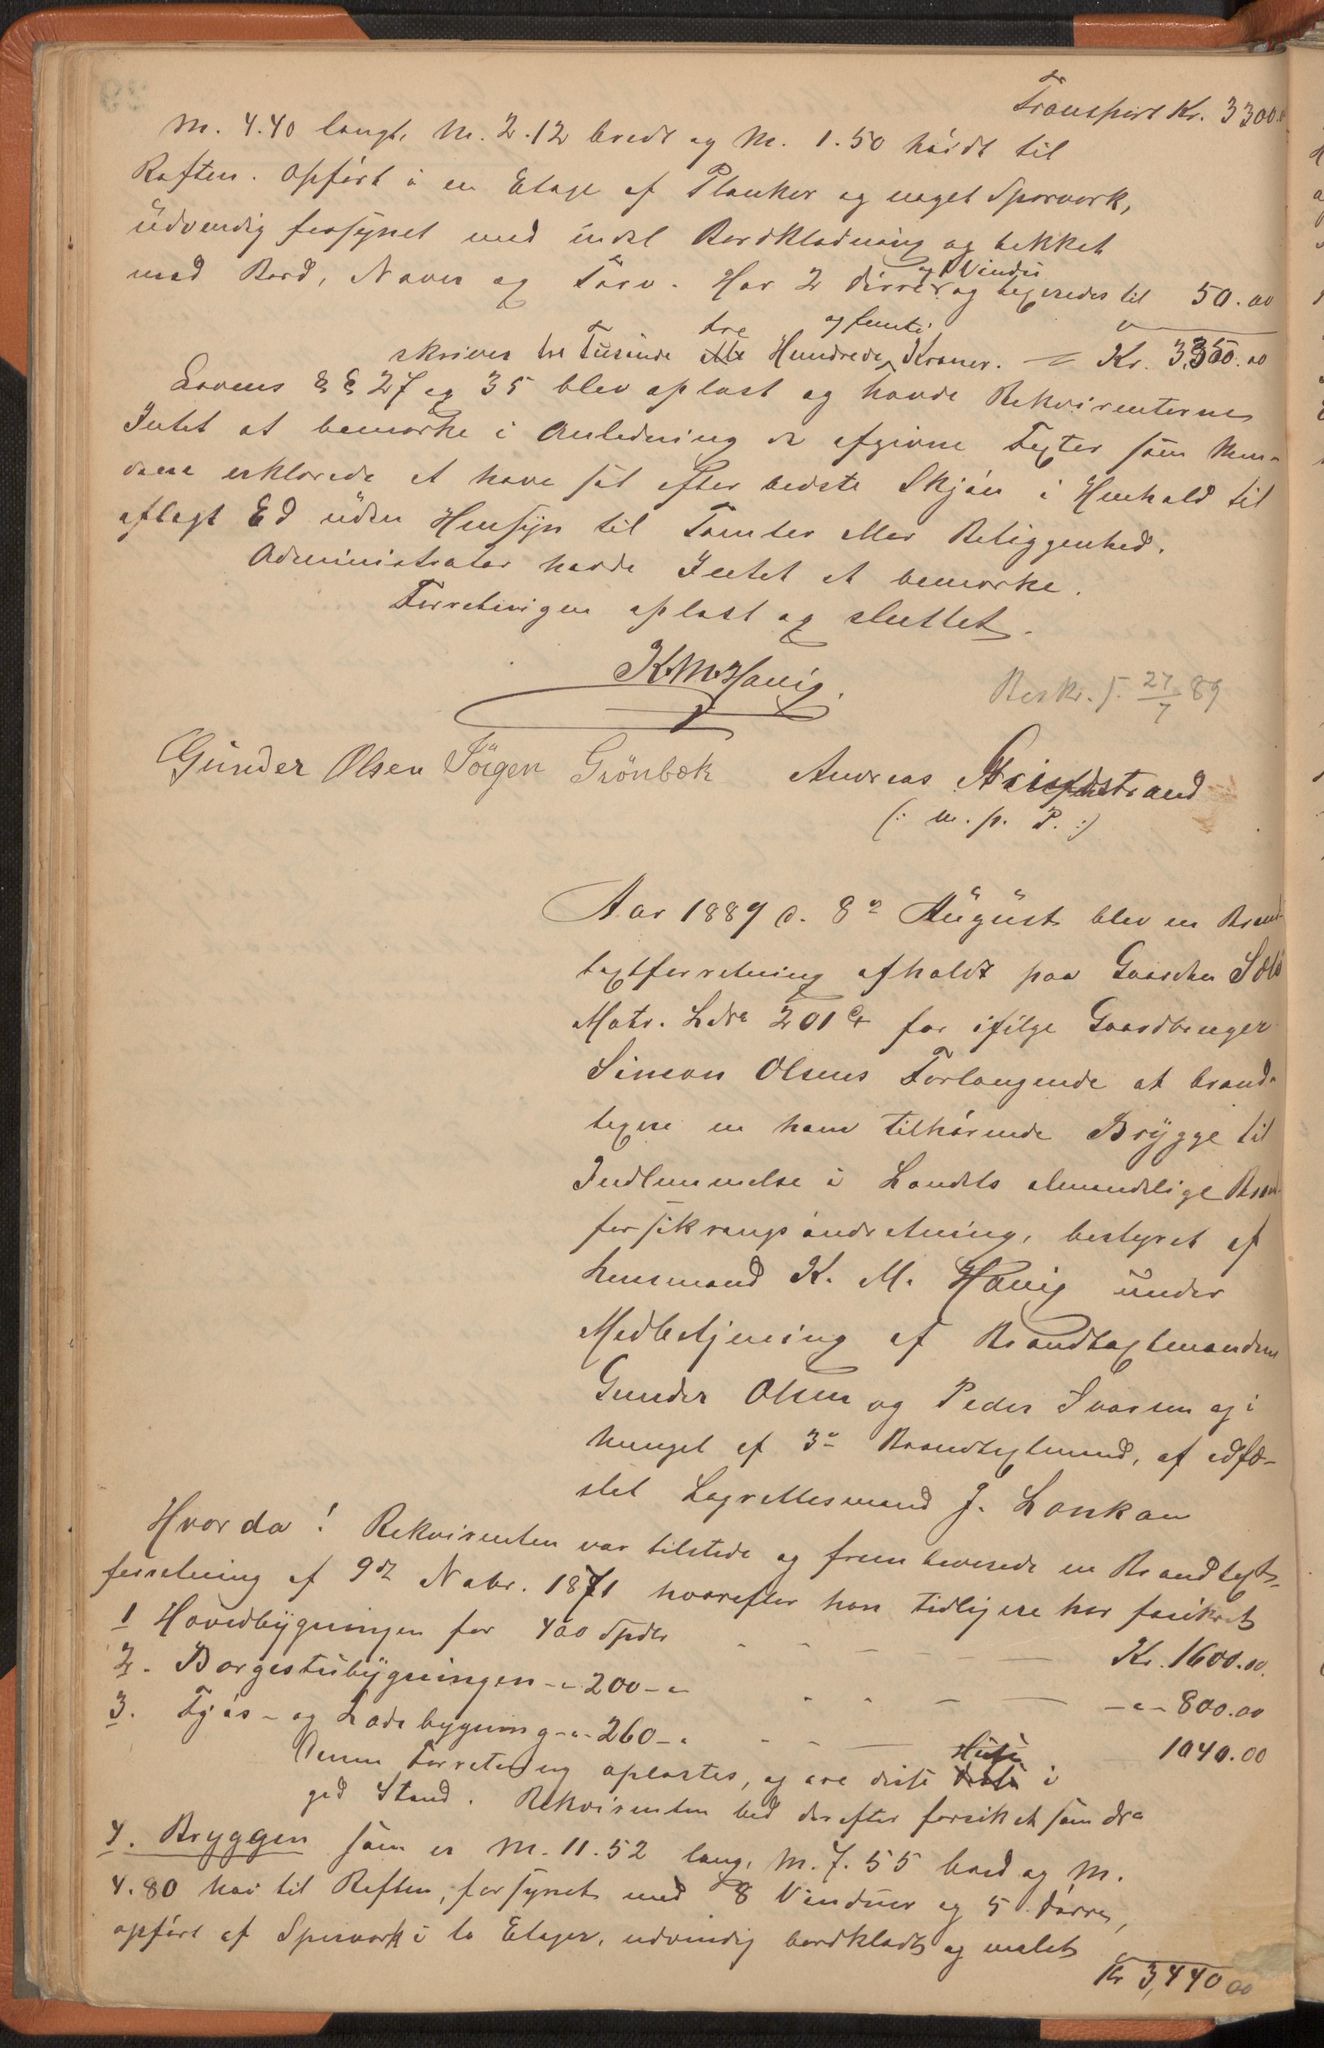 Transport Kr. 3300.
M. 4.40 langt, M. 2.12 bredt og M. 1.50 høidt til
Raften. Opført i en Etage af Planker og noget Sporverk,
udvendig forsynet med endel Bordklædning og tækket
med Bord, Næver og Törv. Har 2 dörre og 1 Vindu og taxeredes til 50.00
skriver tre Tusinde tre Hundrede og femti Kroner. = Kr. 3350.00
Lovens §§ 27 og 35 blev oplæst og havde Rekvirenterne
Intet at bemærke i Anledning de afgivne Taxter som Mæn-
dene erklærede at have sat efter bedste Skjøn i Henhold til
aflagt Ed uden Hensyn til Tomter eller Beliggenhed.
Administrator havde Intet at bemærke.
Forretningen oplæst og sluttet.
K. M. Havig.
Beskr. f. 27/7 89
Gunder Olsen Jörgen Grönbæk Andreas
(: m. p. P. :)
Aar 1889 d. 8de August blev en Brand-
taxtforretning afholdt paa Gaarden
Matr. Lbno 201 for ifölge Gaardbruger
Simon Olsens Forlangende at brand-
taxere en ham tilhørende Brygge til
Indlemmelse i Landets almindelige Brand-
forsikringsindretning, bestyret af
Lensmand K. M. Havig under
Medbetjening af Brandtaxtmændene
Gunder Olsen og Peder Ivarsen og i
Mangel af 3de Brandtaxtmand, af edfæ-
stet Lagrettesmand J. Lonkan
Hvorda! Rekvirenten var tilstede og frembeviste en Brandtaxt-
forretning af 9de Novbr. 1871 hvorefter han tidligere har forsikret
1 Hovedbygningen for 400 Spdlr - - - - Kr. 1600.00
2. Borgestubygningen -"- 200 -"- - - - -"- 800.00
3. Fjös- og Ladebygning -"- 260 -" - - - 1040.00
Denne Forretning oplæstes, og ere disse Huse i
god Stand. Rekvirenten bad derefter forsikret som No
4. Bryggen som er M. 11.52 lang, M. 7.55 bred og M.
4.80 høi til Raften, forsynet med 8 Vinduer og 5 dörre,
opført af Sperverk i to Etager, udvendig bordklædt og malet
Kr 3,440 00